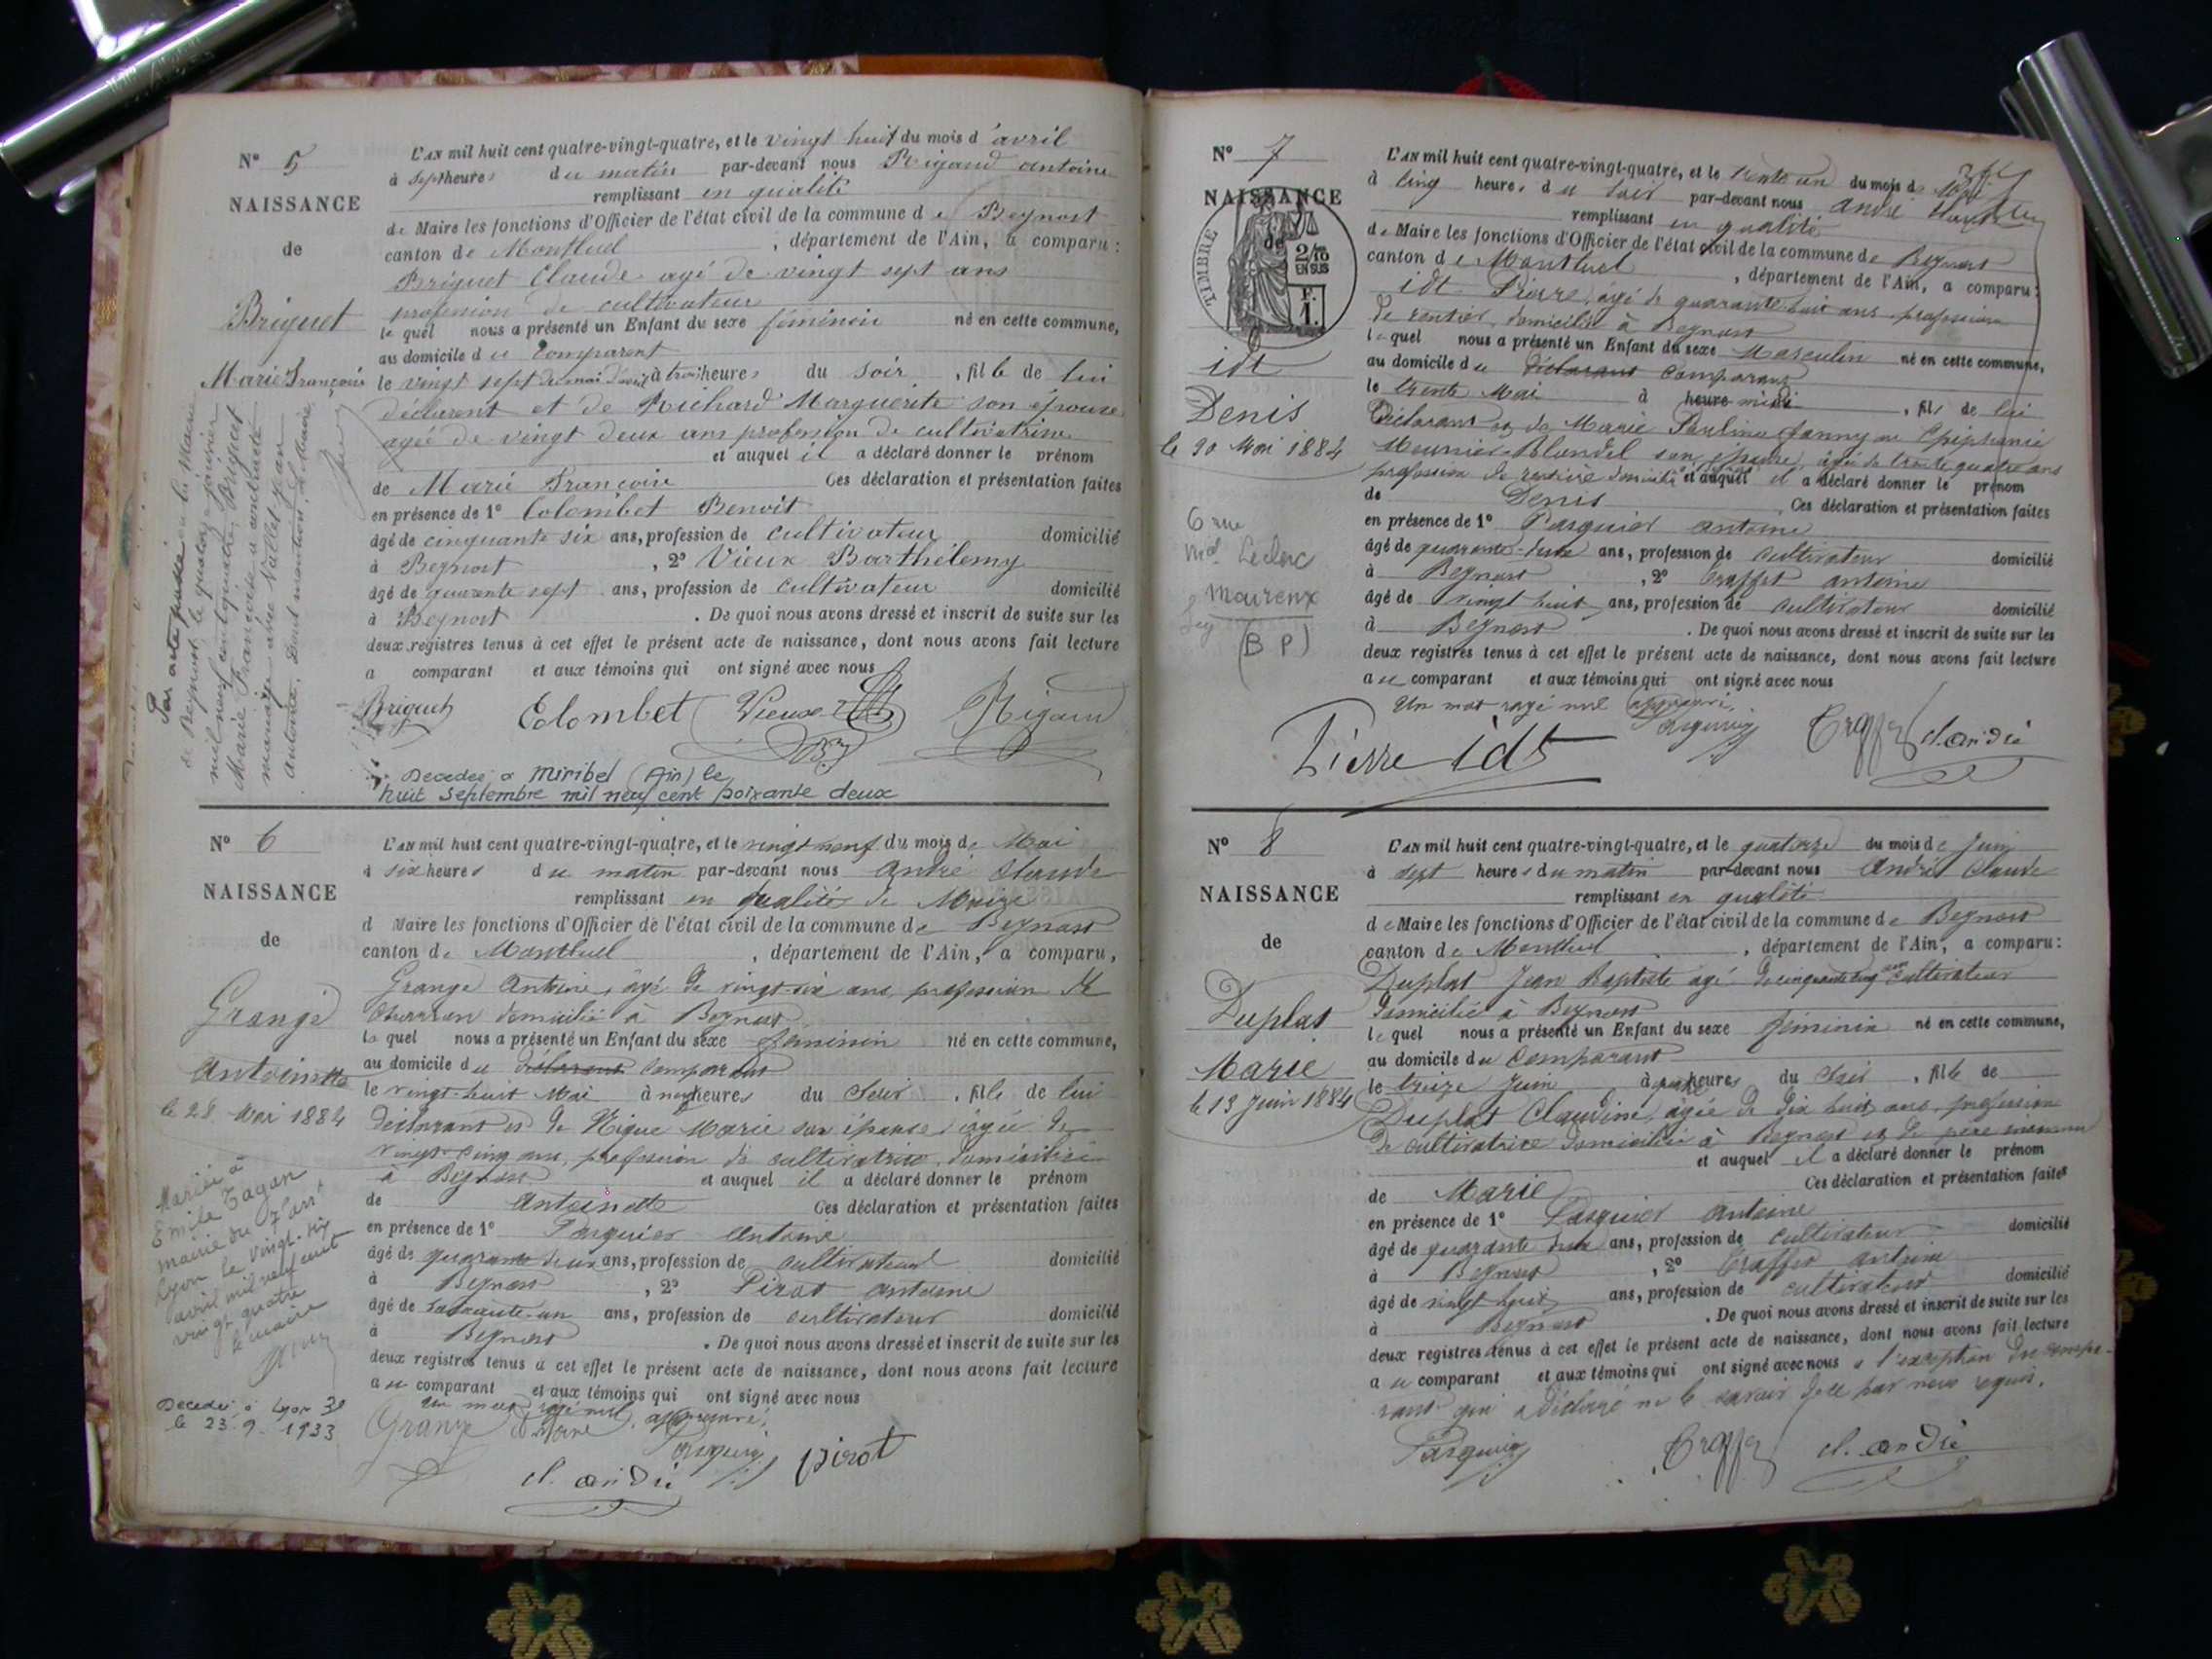 N° 5
NAISSANCE
de
Briguet
Marie Françoise
L'AN mil huit cent quatre-vingt-quatre, et le vingt huit du mois d'avril
à sept heures du matin par-devant nous Rigaud antoine
remplissant en qualité
de Maire les fonctions d'Officier de l'état civil de la commune de Beynost
canton de Montluel, département de l'Ain, a comparu:
Briguet Claude agé de vingt sept ans
profession de cultivateur
lequel nous a présenté un Enfant du sexe féminin né en cette commune,
au domicile du Comparant
le vingt sept du mois d'avril à trois heures du soir, fille de lui
déclarent et de Richard Marguerite son épouse
agée de vingt deux ans profession de cultivatrice
et auquel il a déclaré donner le prénom
de Marie Françoise Ces déclaration et présentation faites
en présence de 1° Colombet Benoit
âgé de cinquante six ans, profession de cultivateur domicilié
à Beynost, 2° Vieux Barthélemy
âgé de quarente sept ans, profession de cultivateur domicilié
à Beynost. De quoi nous avons dressé et inscrit de suite sur les
deux registres tenus à cet effet le présent acte de naissance, dont nous avons fait lecture
a comparant et aux témoins qui ont signé avec nous
Briguet Colombet Vieux Rigaud
Par acte passé à la Mairie
de Beynost, le quatorze janvier
mil neuf cent quatre Briguet
Marie Françoise a contracté
mariage avec Vallet Jean
antoine. Dont mention, le Maire,
Decedee a Miribel (Ain) le
huit septembre mil neuf cent soixante deux
N° 6
NAISSANCE
de
Grange
Antoinette
le 28 Mai 1884
L'AN mil huit cent quatre-vingt-quatre, et le vingt neuf du mois de Mai
à six heures du matin par-devant nous André Claude
remplissant en qualité de Maire
d Maire les fonctions d'Officier de l'état civil de la commune de Beynost
canton de Montluel, département de l'Ain, a comparu,
Grange Antoine, âgé de vingt-six ans, profession de
Charron domicilié à Beynost
lequel nous a présenté un Enfant du sexe féminin né en cette commune,
au domicile du déclarant comparant
le vingt-huit Mai à neuf heures du Soir, fille de lui
déclarant et de Nique Marie son épouse, âgée de
vingt-cinq ans, profession de cultivatrice, domiciliée
à Beynost et auquel il a déclaré donner le prénom
de Antoinette Ces déclaration et présentation faites
en présence de 1° Pasquier Antoine
âgé de quarante deux ans, profession de cultivateur domicilié
à Beynost, 2° Pirot Antoine
âgé de soixante-un ans, profession de cultivateur domicilié
à Beynost. De quoi nous avons dressé et inscrit de suite sur les
deux registres tenus à cet effet le présent acte de naissance, dont nous avons fait lecture
au comparant et aux témoins qui ont signé avec nous
un mot rayé nul approuvé,
Grange Antoine Pasquier pirot
cl. andré
Mariée à
Emile Tagan
mairie du 7e arrt
Lyon le vingt-six
avril mil neuf cent
vingt quatre
le maire
Decedee à Lyon 3e
le 23-9-1933
N° 7
NAISSANCE
de
TIMBRE
2/10
EN SUS
F.
1.
idt
Denis
le 30 Mai 1884
6 rue
Mal Leclerc
Mourenx
(B P)
L'AN mil huit cent quatre-vingt-quatre, et le trente un du mois de Mai
à cinq heures du soir par-devant nous André Claude
remplissant en qualité
de Maire les fonctions d'Officier de l'état civil de la commune de Beynost
canton de Montluel, département de l'Ain, a comparu:
idt Pierre, âgé de quarante-huit ans profession
de rentier, domicilié à Beynost
lequel nous a présenté un Enfant du sexe Masculin né en cette commune,
au domicile du déclarant comparant
le trente Mai à heure midi, fils de lui
Déclarant et de Marie Pauline Fanny Epiphanie
Meunier-Blondel son épouse, âgée de trente quatre ans
profession de rentière domiciliée et auquel il a déclaré donner le prénom
de Denis Ces déclaration et présentation faites
en présence de 1° Pasquier antoine
âgé de quarante-deux ans, profession de cultivateur domicilié
à Beynost, 2° Traffet antoine
âgé de vingt huit ans, profession de cultivateur domicilié
à Beynost. De quoi nous avons dressé et inscrit de suite sur les
deux registres tenus à cet effet le présent acte de naissance, dont nous avons fait lecture
au comparant et aux témoins qui ont signé avec nous
Un mot rayé nul approuvé,
Pierre idt Pasquier cl. andré
N° 8
NAISSANCE
de
Duplat
Marie
le 13 Juin 1884
L'AN mil huit cent quatre-vingt-quatre, et le quatorze du mois de Juin
à sept heures du matin par-devant nous André Claude
remplissant en qualité
de Maire les fonctions d'Officier de l'état civil de la commune de Beynost
canton de Montluel, département de l'Ain, a comparu:
Duplat Jean Baptiste agé de cinquante cinq ans cultivateur
Domicilié à Beynost
lequel nous a présenté un Enfant du sexe féminin né en cette commune,
au domicile du Comparant
le treize Juin à heures du Soir, fille de
Duplat Claudine, agée de dix huit ans, profession
de cultivatrice domiciliée à Beynost et de père inconnu
et auquel il a déclaré donner le prénom
de Marie Ces déclaration et présentation faites
en présence de 1° Pasquier Antoine
âgé de quarante deux ans, profession de cultivateur domicilié
à Beynost, 2° Traffet Antoine
âgé de vingt huit ans, profession de cultivateur domicilié
à Beynost. De quoi nous avons dressé et inscrit de suite sur les
deux registres tenus à cet effet le présent acte de naissance, dont nous avons fait lecture
au comparant et aux témoins qui ont signé avec nous à l'exception du compa-
rant qui a déclaré ne le savoir de ce par nous requis.
Pasquier cl. andré